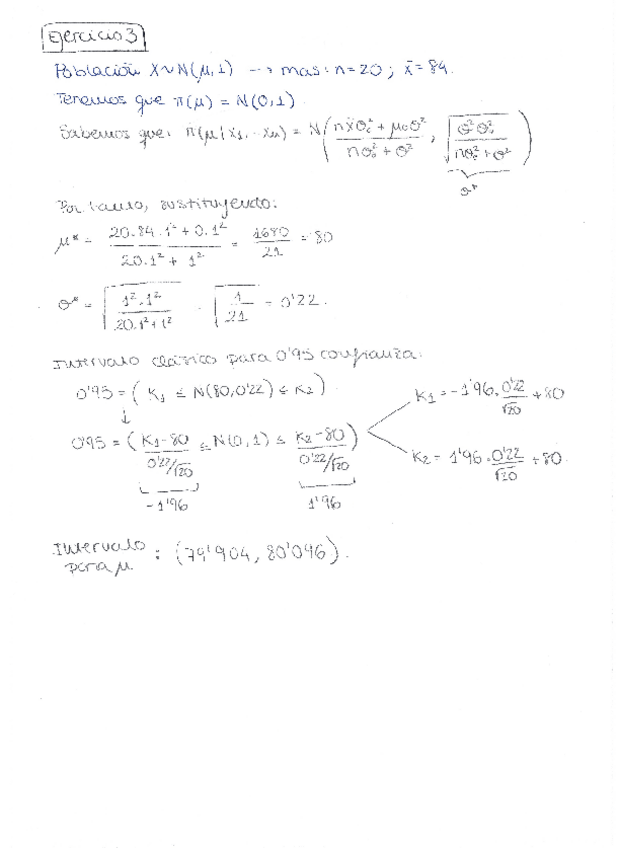 Ejercicio 3
Población X∼N(μ,1) --> mas: n=20; x̄=84.
Tenemos que π(μ) = N(0,1)
Sabemos que: π(μ|x1,...xn) = N( (n x̄ σ0² + μ0 σ²)/(nσ0² + σ²) , √(σ² σ0²/(nσ0² + σ²)) )
σ*
Por tanto, sustituyendo:
μ* = (20.84.1² + 0.1²)/(20.1² + 1²) = 1680/21 = 80
σ* = √(1².1²/(20.1²+1²)) = √(1/21) = 0'22.
Intervalo clásico para 0'95 confianza:
0'95 = (K1 ≤ N(80,0'22) ≤ K2)
↓
0'95 = ( (K1-80)/(0'22/√20) ≤ N(0,1) ≤ (K2-80)/(0'22/√20) )
-1'96 1'96
K1 = -1'96 · 0'22/√20 + 80
K2 = 1'96 · 0'22/√20 + 80.
Intervalo para μ : (79'904, 80'096).